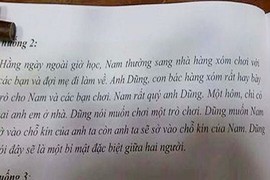 huống 2:
Hằng ngày ngoài giờ học, Nam thường sang nhà hàng xóm chơi với
các bạn và đợi mẹ đi làm về. Anh Dũng, con bác hàng xóm rất hay bày
trò cho Nam và các bạn chơi. Nam rất quý anh Dũng. Một hôm, chỉ có
ai anh em ở nhà. Dũng nói muốn chơi một trò chơi. Dũng muốn Nam
sờ vào chỗ kín của anh ta còn anh ta sẽ sờ vào chỗ kín của Nam. Dũng
ói đây sẽ là một bí mật đặc biệt giữa hai người.
uống 3: